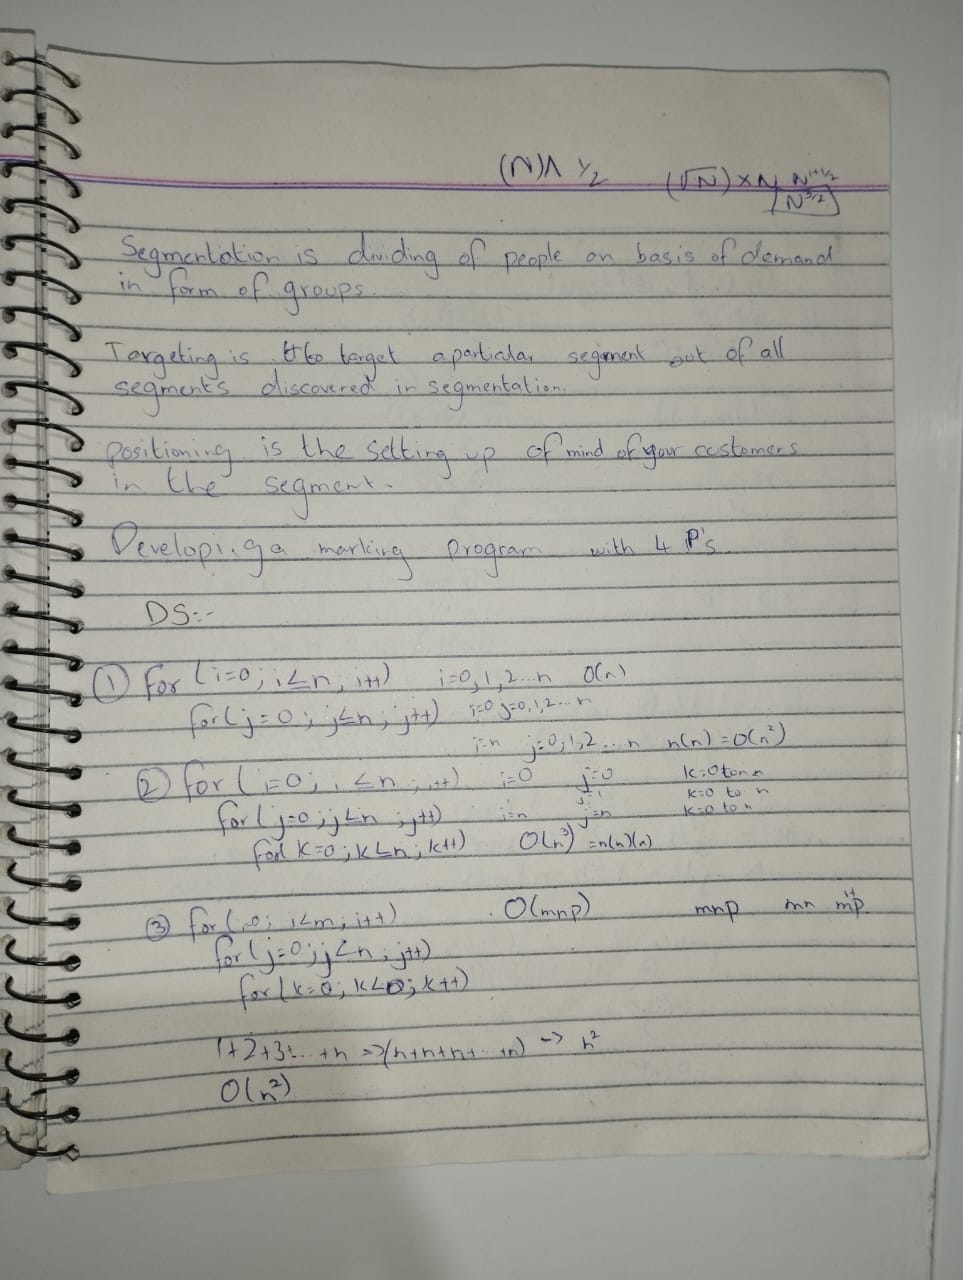 (N)∧ 1/2
(√N) × N N^(1+1/2)
N^(3/2)
Segmentation is dividing of people on basis of demand
in form of groups.
Targeting is to target a particular segment out of all
segments discovered in segmentation.
positioning is the setting up of mind of your customers
in the segment.
Developing a marking program with 4 P's
DS:-
① for (i=0; i≤n; i++) i=0,1,2...n O(n)
for(j=0; j≤n; j++) i=0 j=0,1,2...n
i=n j=0,1,2...n n(n) = O(n²)
② for (i=0; i≤n; i++) i=0 j=0 k=0 to n
j=1 k=0 to n
for(j=0; j<n; j++) i=n j=n k=0 to n
for( k=0; k<n; k++) O(n³) = n(n)(n)
③ for(i=0; i<m; i++) O(mnp) mnp mn mp
for(j=0; j<n; j++)
for(k=0; k<p; k++)
1+2+3+...+n => (n+n+n+...+n) -> n²
O(n²)